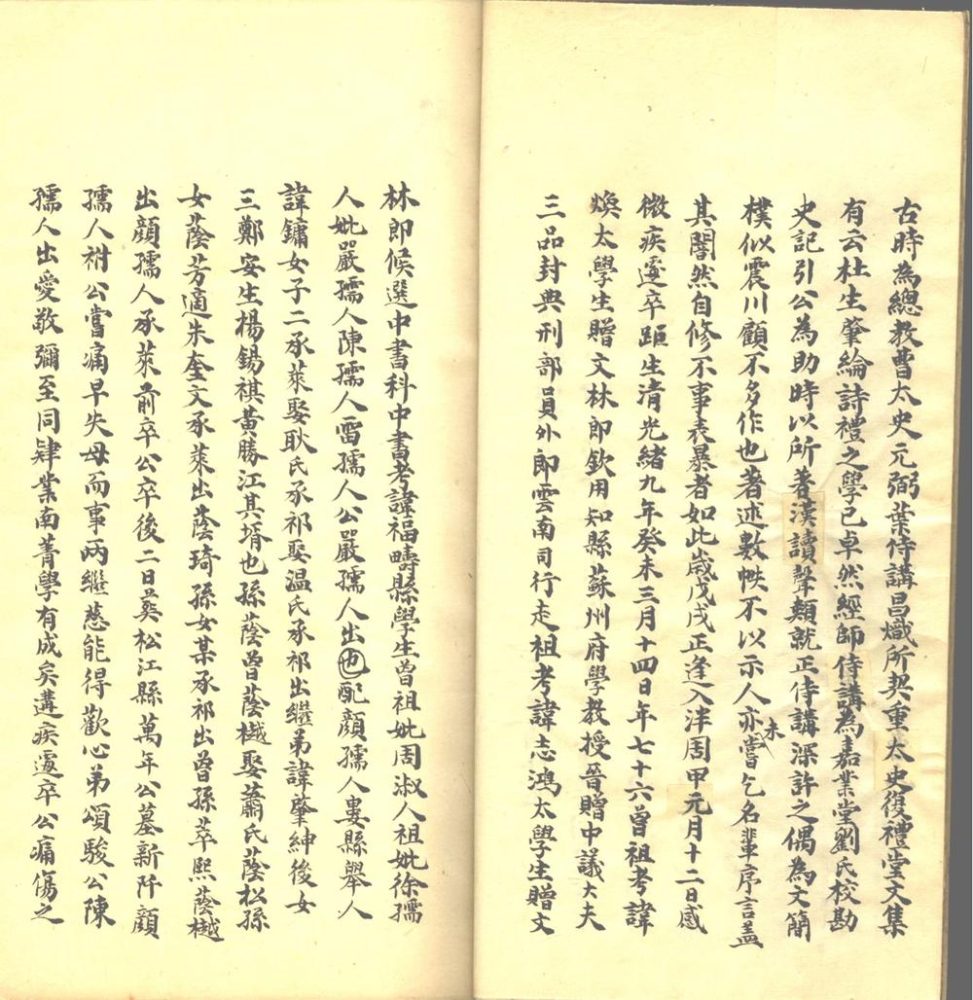 古時為總教曹太史元弼葉侍講昌熾所契重太史復禮堂文集
有云杜生肇綸詩禮之學已卓然經師侍講為嘉業堂劉氏校勘
史記引公為助時以所著漢讀聲類就正侍講深許之偶為文簡
樸似震川顧不多作也著述數帙不以示人亦未嘗乞名輩序言蓋
其闇然自修不事表暴者如此歲戊戌正逢入泮周甲元月十二日感
微疾遽卒距生清光緒九年癸未三月十四日年七十六曾祖考諱
煥太學生贈文林郎欽用知縣蘇州府學教授晉贈中議大夫
三品封典刑部員外郎雲南司行走祖考諱志鴻太學生贈文
林郎候選中書科中書考諱福疇縣學生曾祖妣周淑人祖妣徐孺
人妣嚴孺人陳孺人雷孺人公嚴孺人出也配顏孺人婁縣舉人
諱鏞女子二承萊娶耿氏承祁娶温氏承祁出繼弟諱肇紳後女
三鄭安生楊錫祺黃勝江其壻也孫蔭曾蔭樾娶蕭氏蔭松孫
女蔭芳適朱奎文承萊出蔭琦孫女某承祁出曾孫萃熙蔭樾
出顏孺人承萊前卒公卒後二日葬松江縣萬年公墓新阡顏
孺人祔公嘗痛早失母而事兩繼慈能得歡心弟頌駿公陳
孺人出愛敬彌至同肄業南菁學有成矣遘疾遽卒公痛傷之